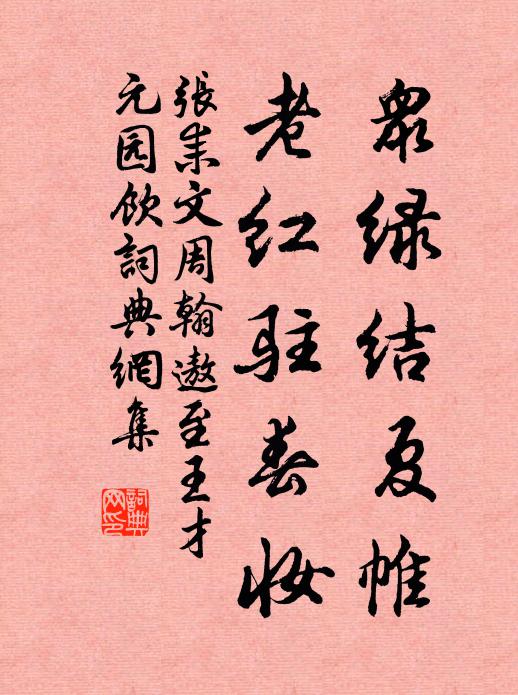 眾綠結夏帷
老紅駐春妝
張耒文周翰遨至王才
元园飲詞典網集
詞典网印